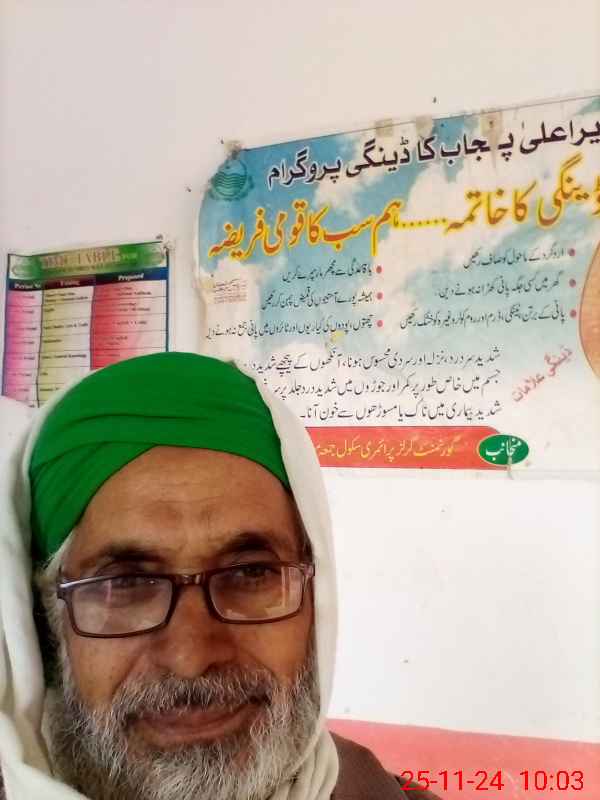 یراعلیٰ پنجاب کا ڈینگی پروگرام
ڈینگی کا خاتمہ......ہم سب کا قومی فریضہ
اردگرد کے ماحول کو صاف رکھیں
باقاعدگی سے مچھر مار سپرے کریں
گھر میں کسی جگہ پانی کھڑا نہ ہونے دیں۔
ہمیشہ پورے آستینوں کی قمیض پہن کر رکھیں
پانی کے برتن، ٹینکی، ڈرم اور روم کولر وغیرہ کو خشک رکھیں
چھتوں، پودوں کی کیاریوں اور ٹائروں میں پانی جمع نہ ہونے دیں
ڈینگی علامات
شدید سردرد، نزلہ اور سردی محسوس ہونا، آنکھوں کے پیچھے شدید درد
جسم میں خاص طور پر کمر اور جوڑوں میں شدید درد جلد پر سر
شدید بیماری میں ناک یا مسوڑھوں سے خون آنا۔
منجانب
گورنمنٹ گرلز پرائمری سکول جمعہ
TIME TABLE FOR
Period No Timing Prepared
25-11-24 10:03